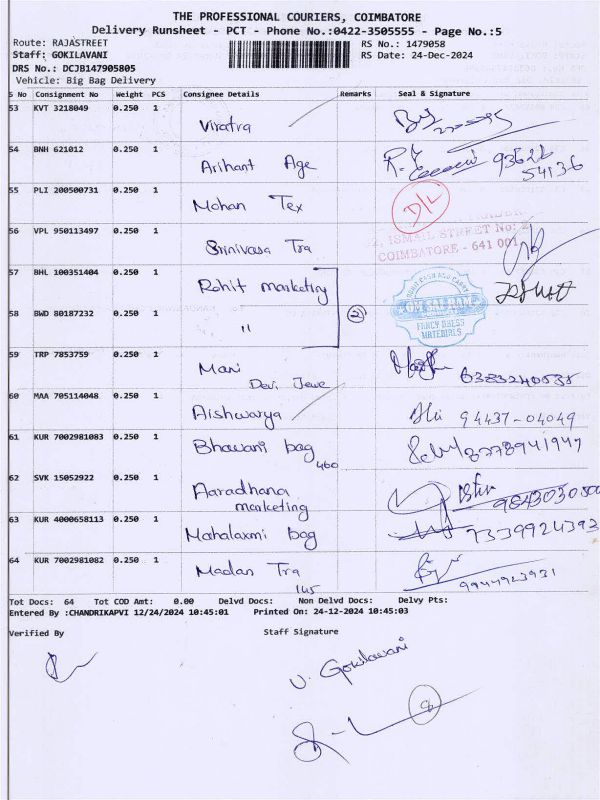 THE PROFESSIONAL COURIERS, COIMBATORE
Delivery Runsheet - PCT - Phone No.:0422-3505555 - Page No.:5
Route: RAJASTREET RS No.: 1479058
Staff: GOKILAVANI RS Date: 24-Dec-2024
DRS No.: DCJB147905805
Vehicle: Big Bag Delivery
S No Consignment No Weight PCS Consignee Details Remarks Seal & Signature
53 KVT 3218049 0.250 1 Viratra
54 BNH 621012 0.250 1 Arihant Age 93626
54136
55 PLI 200500731 0.250 1 Mohan Tex D/L
56 VPL 950113497 0.250 1 Srinivasa Tra
ISMAIL STREET No: 2
COIMBATORE - 641 001
57 BHL 100351404 0.250 1 Rohit marketing
58 BWD 80187232 0.250 1 " 2
OM SAI RAM
FANCY DRESS
MATERIALS
59 TRP 7853759 0.250 1 Mani
Devi Jewe 6383240038
60 MAA 705114048 0.250 1 Aishwarya 94437-04049
61 KUR 7002981083 0.250 1 Bhawani bag 8778941947
460
62 SVK 15052922 0.250 1 Aaradhana
marketing 9843030500
63 KUR 4000658113 0.250 1 Mahalaxmi bag 7339924393
64 KUR 7002981082 0.250 1 Madan Tra 9944923931
145
Tot Docs: 64 Tot COD Amt: 0.00 Delvd Docs: Non Delvd Docs: Delvy Pts:
Entered By :CHANDRIKAPVI 12/24/2024 10:45:01 Printed On: 24-12-2024 10:45:03
Verified By Staff Signature
V. Gokilavani